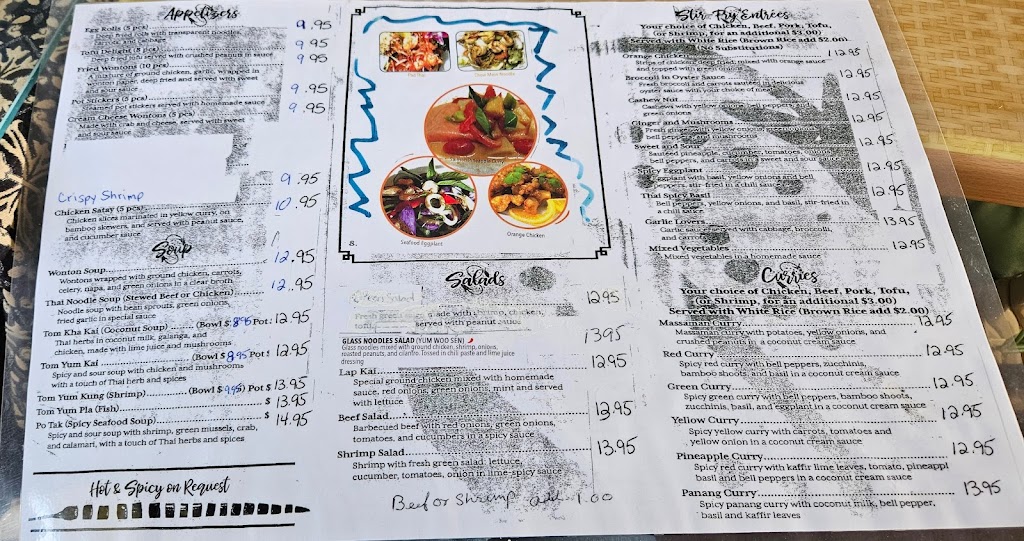 Appetizers
Egg Rolls (5 pcs) 9.95
rolls with transparent noodles,
carrots, and cabbage
Tofu Delight (8 pcs) 9.95
Deep fried tofu served with crushed peanuts in sauce
Fried Wontons (10 pcs) 9.95
A mixture of ground chicken, garlic, wrapped in
wonton paper, deep fried and served with sweet
and sour sauce
Pot Stickers (5 pcs) 9.95
Steamed pot stickers served with homemade sauce
Cream Cheese Wontons (5 pcs) 9.95
Made with crab and cheese, served with sweet
and sour sauce
Crispy Shrimp 9.95
Chicken Satay (5 pcs) 10.95
Chicken slices marinated in yellow curry, on
bamboo skewers, and served with peanut sauce,
and cucumber sauce
Soup
Wonton Soup 12.95
Wontons wrapped with ground chicken, carrots,
celery, napa, and green onions in a clear broth
Thai Noodle Soup (Stewed Beef or Chicken) 12.95
Noodle soup with bean sprouts, green onions,
fried garlic in special sauce
Tom Kha Kai (Coconut Soup) (Bowl $ 8.95 Pot: 12.95
Thai herbs in coconut milk, galanga, and
chicken, made with lime juice and mushrooms
Tom Yum Kai (Bowl $ 8.95 Pot: 12.95
Spicy and sour soup with chicken and mushrooms
with a touch of Thai herb and spices
Tom Yum Kung (Shrimp) (Bowl $ 9.95) Pot $ 13.95
Tom Yum Pla (Fish) $ 13.95
Po Tak (Spicy Seafood Soup) $ 14.95
Spicy and sour soup with shrimp, green mussels, crab,
and calamari, with a touch of Thai herbs and spices
Hot & Spicy on Request
Pad Thai
Seafood Eggplant
Orange Chicken
8.
Salads
Salad 12.95
Fresh green made with shrimp, chicken,
tofu, served with peanut sauce
GLASS NOODLES SALAD (YUM WOO SEN) 13.95
Glass noodles mixed with ground chicken, shrimp, onions,
roasted peanuts, and cilantro. Tossed in chili paste and lime juice
dressing
Lap Kai 12.95
Special ground chicken mixed with homemade
sauce, red onions, green onions, mint and served
with lettuce
Beef Salad 12.95
Barbecued beef with red onions, green onions,
tomatoes, and cucumbers in a spicy sauce
Shrimp Salad 13.95
Shrimp with fresh green salad, lettuce,
cucumber, tomatoes, onion in lime-spicy sauce
Beef or Shrimp add 1.00
Stir Fry Entrées
Your choice of Chicken, Beef, Pork, Tofu,
(or Shrimp, for an additional $3.00)
Served with White Rice (Brown Rice add $2.00)
(No Substitutions)
Orange 12.95
Strips of chicken deep fried, mixed with orange sauce
and topped with green onions
Broccoli in Oyster Sauce 12.95
Fresh broccoli and carrots sautéed in delicious
oyster sauce with your choice of meat
Cashew Nut 12.95
Cashews with yellow onions, bell peppers, and
green onions
Ginger and Mushrooms 12.95
Fresh ginger with yellow onions, mushrooms,
bell peppers, and green onions
Sweet and Sour 12.95
Sauteed pineapple, cucumber, tomatoes, onions,
bell peppers, and carrots in a sweet and sour sauce
Spicy Eggplant 12.95
Eggplant with basil, yellow onions and bell
peppers, stir-fried in a chili sauce
Thai Spicy Basil 12.95
Bell peppers, yellow onions, and basil, stir-fried in
a chili sauce
Garlic Lovers 13.95
Garlic sauce served with cabbage, broccoli,
and carrots
Mixed Vegetables 12.95
Mixed vegetables in a homemade sauce
Curries
Your choice of Chicken, Beef, Pork, Tofu,
(or Shrimp, for an additional $3.00)
Served with White Rice (Brown Rice add $2.00)
Massaman Curry 12.95
Massaman curry with potatoes, yellow onions, and
crushed peanuts in a coconut cream sauce
Red Curry 12.95
Spicy red curry with bell peppers, zucchinis,
bamboo shoots, and basil in a coconut cream sauce
Green Curry 12.95
Spicy green curry with bell peppers, bamboo shoots,
zucchinis, basil, and eggplant in a coconut cream sauce
Yellow Curry 12.95
Spicy yellow curry with carrots, tomatoes and
yellow onion in a coconut cream sauce
Pineapple Curry 12.95
Spicy red curry with kaffir lime leaves, tomato, pineappl
basil and bell peppers in a coconut cream sauce
Panang Curry 13.95
Spicy panang curry with coconut milk, bell pepper,
basil and kaffir leaves